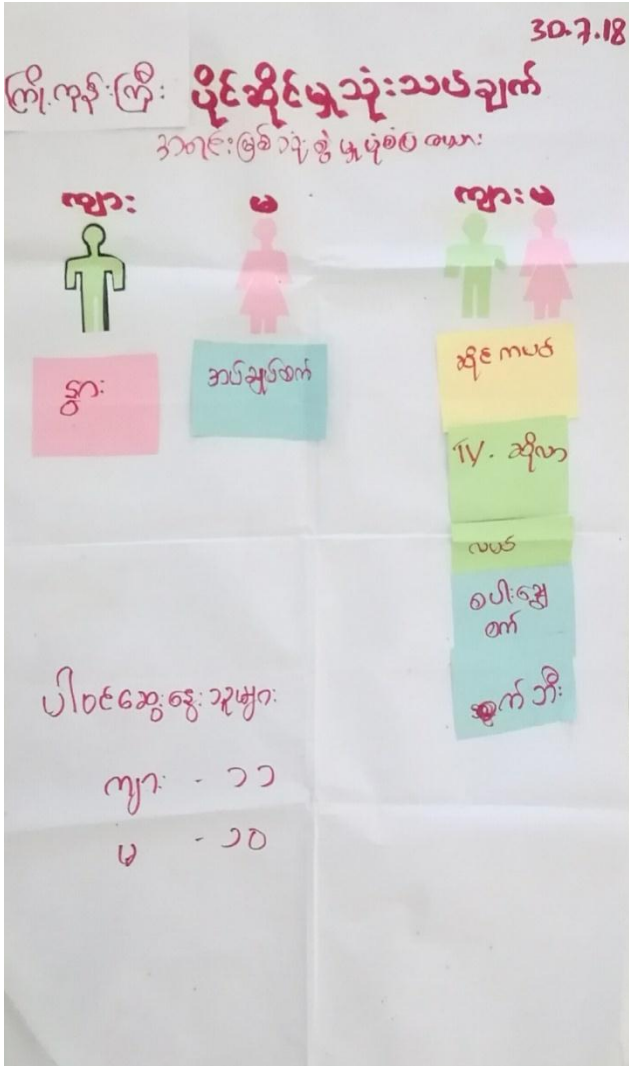 30.7.18
ကြို့ကုန်းကြီး ပိုင်ဆိုင်မှုသုံးသပ်ချက်
အရင်းမြစ်သုံးစွဲမှုပုံစံပြဇယား
ကျား မ ကျား မ
နွား အပ်ချုပ်စက် ဆိုင်ကယ်
TV. ဆိုလာ
လယ်
စပါးချွေ
စက်
ပါဝင်ဆွေးနွေးသူများ
ကျား - ၁၁
မ - ၁၀